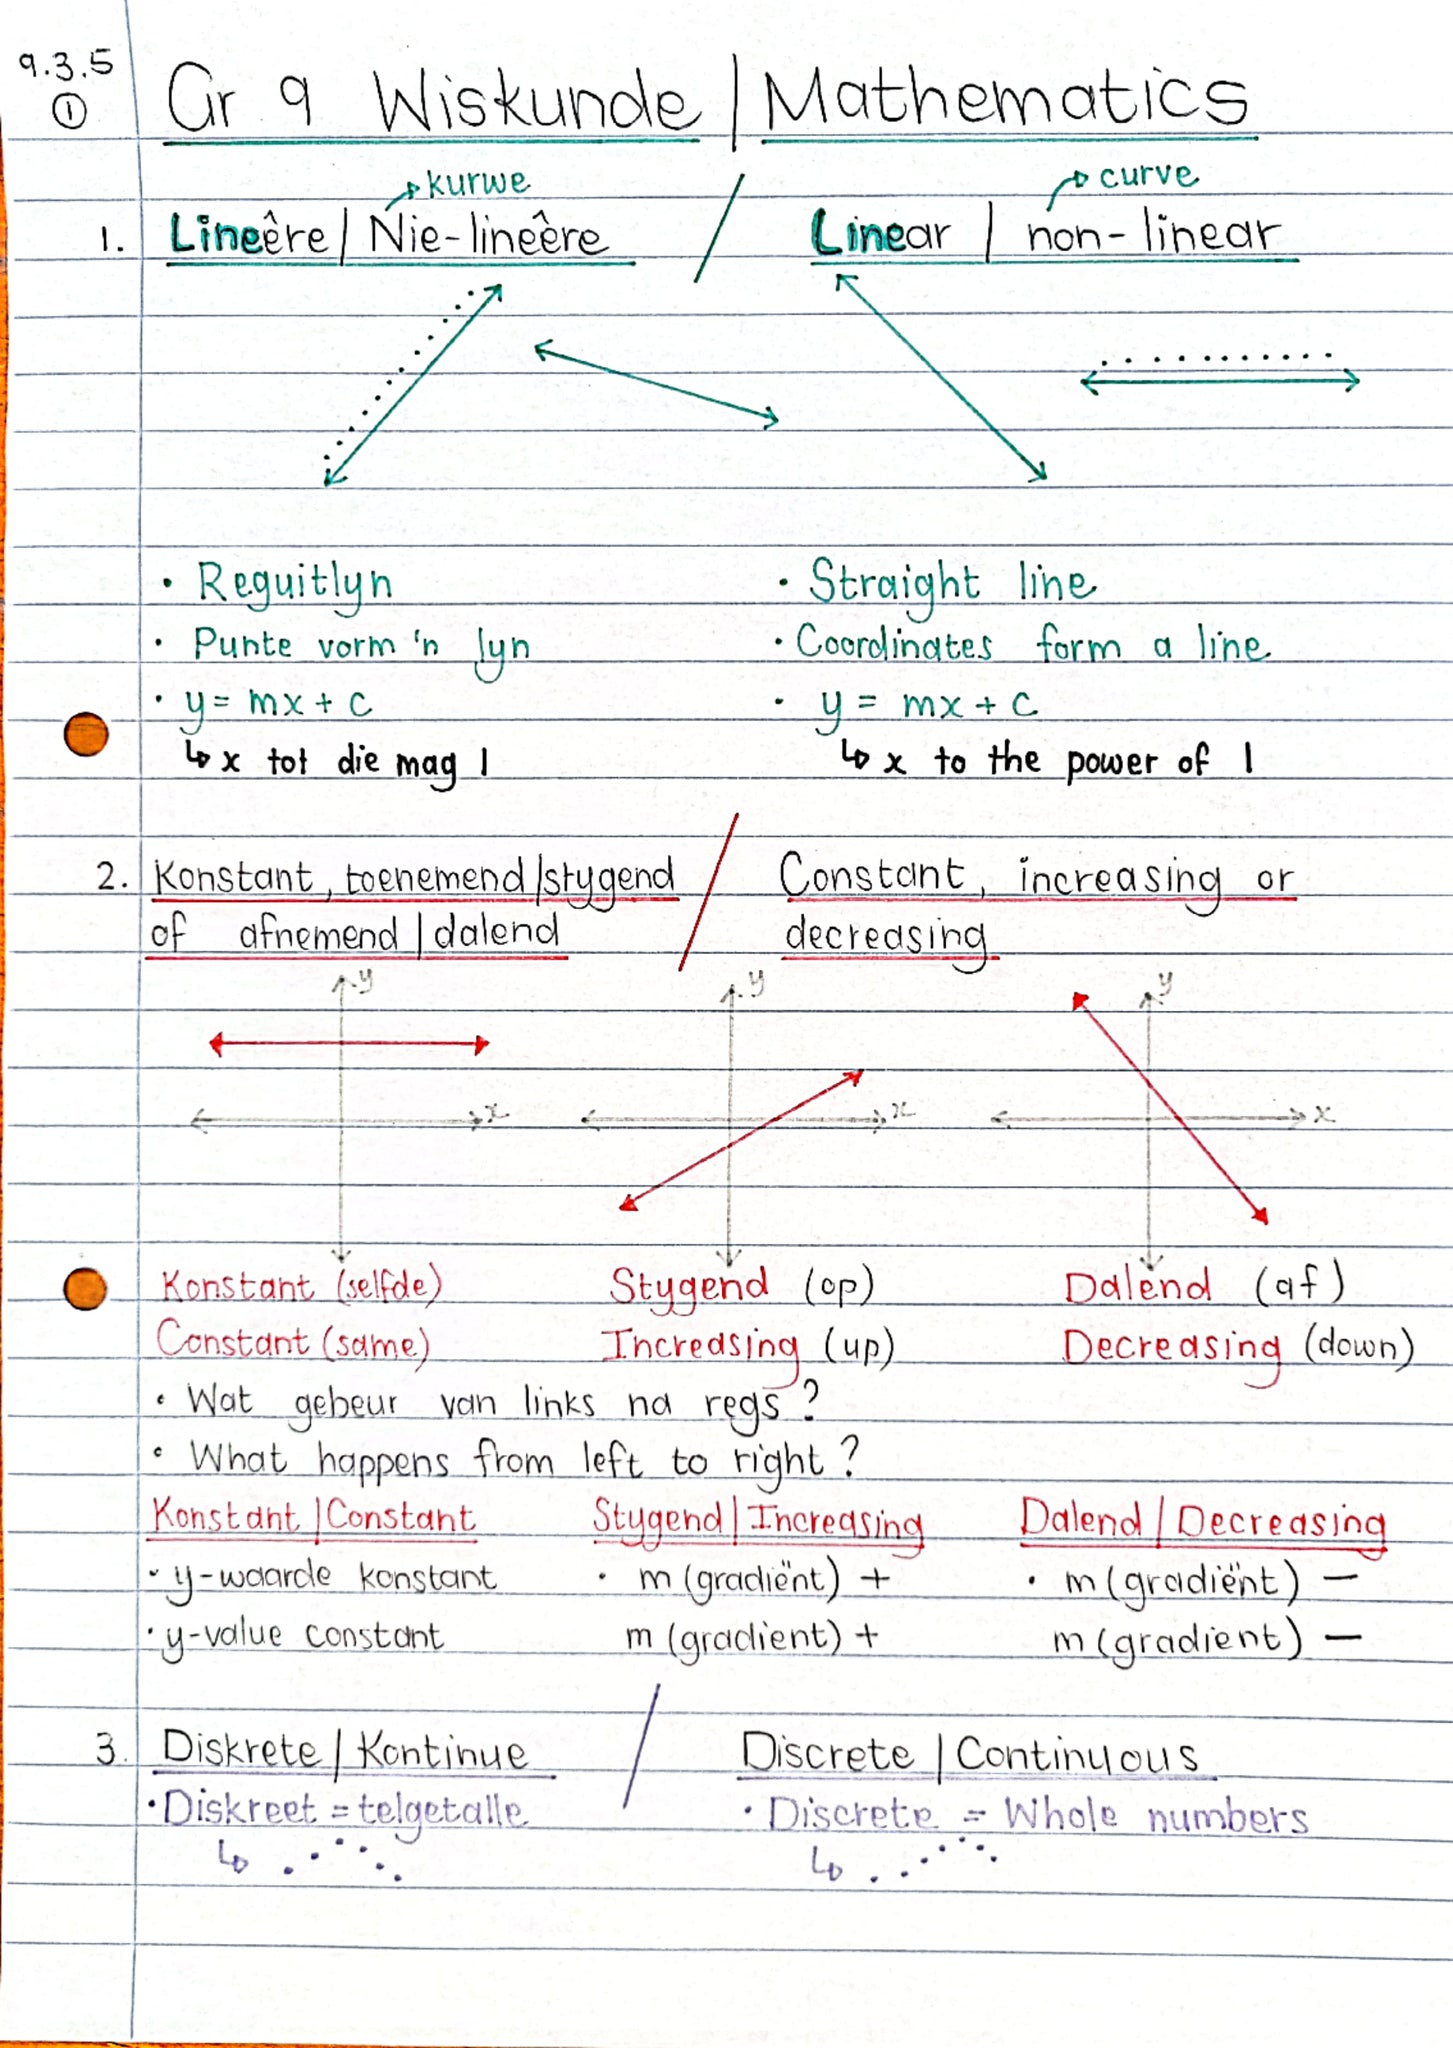 9.3.5
①
Gr 9 Wiskunde | Mathematics
kurwe
curve
1. Lineêre | Nie-lineêre / Linear | non-linear
• Reguitlyn • Straight line
• Punte vorm 'n lyn • Coordinates form a line
• y = mx + c • y = mx + c
↳ x tot die mag 1 ↳ x to the power of 1
2. Konstant, toenemend/stygend / Constant, increasing or
of afnemend | dalend decreasing
y y y
x x x
Konstant (selfde) Stygend (op) Dalend (af)
Constant (same) Increasing (up) Decreasing (down)
• Wat gebeur van links na regs?
• What happens from left to right?
Konstant | Constant Stygend | Increasing Dalend | Decreasing
• y-waarde konstant • m (gradiënt) + • m (gradiënt) −
• y-value constant m (gradient) + m (gradient) −
3. Diskrete | Kontinue / Discrete | Continuous
• Diskreet = telgetalle • Discrete = Whole numbers